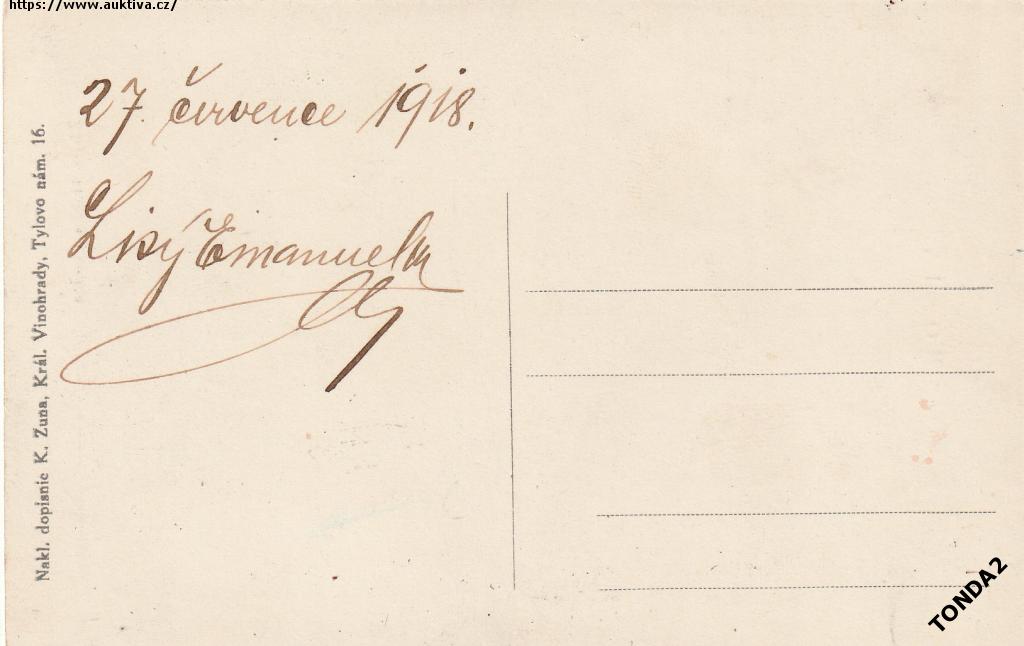 https://www.auktiva.cz/
27. července 1918.
Lisý Emanuel
Nakl. dopisnic K. Zuna, Král. Vinohrady, Tylovo nám. 16.
TONDA2